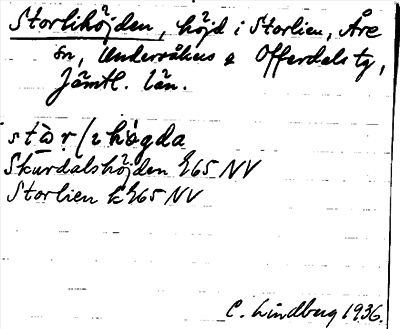 Storlihöjden, höjd i Storlien, Åre
sn, Undersåkers & Offerdals tg,
Jämtl. län.
Skurdalshöjden 65 NV
Storlien k 65 NV
C. Lindberg 1936.